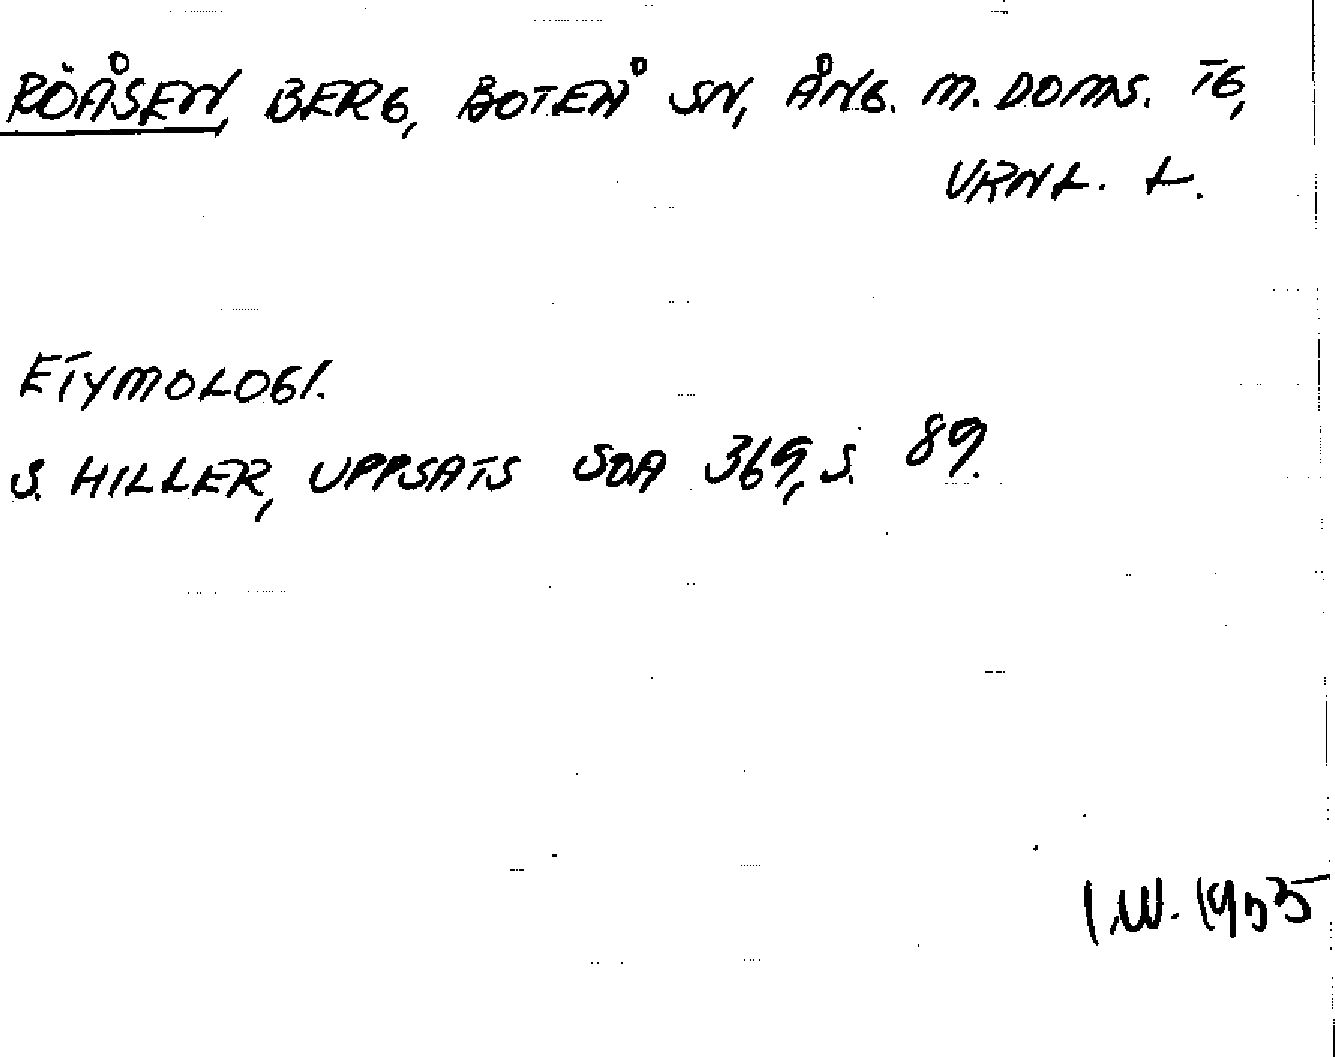 RÖÅSEN, BERG, BOTEÅ SN, ÅNG. M. DOMS. TG,
VRNL. L.
ETYMOLOGI.
S. HILLER, UPPSATS SOA 369, S. 89.
I.W. 1955